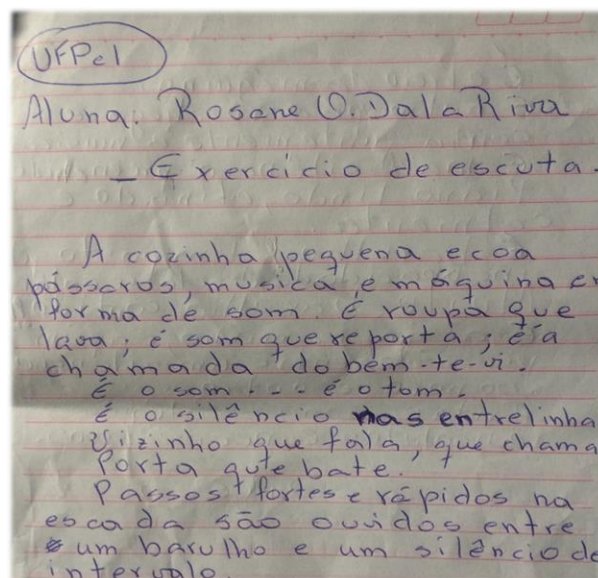 UFPel
Aluna: Rosane O. Dala Riva
- Exercicio de escuta.
A cozinha pequena ecoa
pássaros, musica e máquina em
forma de som. É roupa que
lava; é som que reporta; é a
chamada do bem-te-vi.
É o som... é o tom.
É o silêncio nas entrelinha
Vizinho que fala, que chama
Porta que bate.
Passos fortes e rápidos na
escada são ouvidos entre
um barulho e um silêncio de
intervalo.